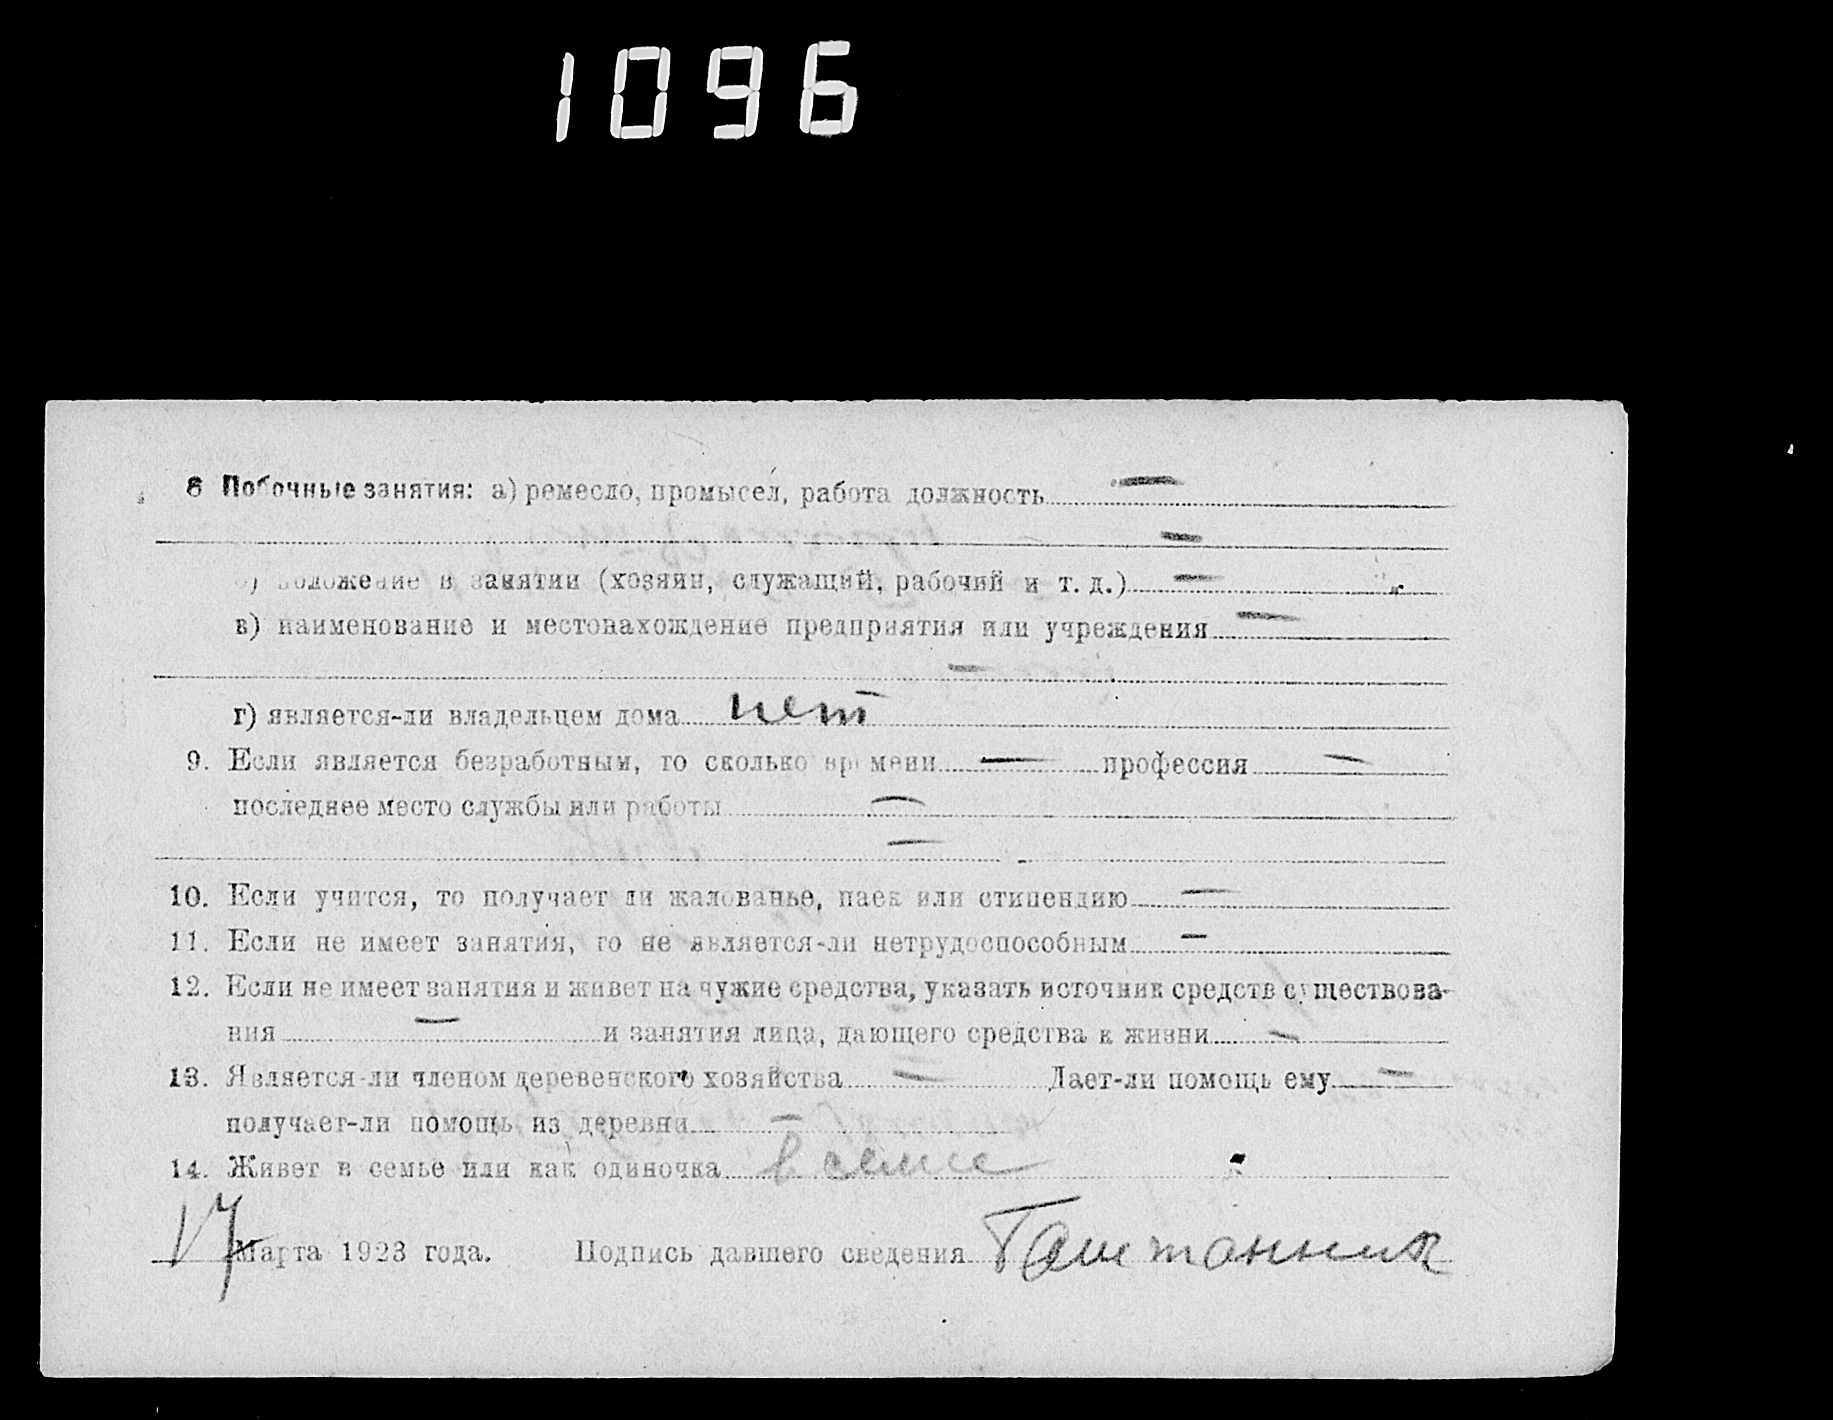 1096
8 Побочные занятия: а) ремесло, промысел, работа должность —
—
б) положение в занятии (хозяин, служащий, рабочий и т. д.) —
в) наименование и местонахождение предприятия или учреждения —
—
г) является-ли владельцем дома нет
9. Если является безработным, то сколько времени — профессия —
последнее место службы или работы —
—
10. Если учится, то получает ли жалованье, паек или стипендию —
11. Если не имеет занятия, то не является-ли нетрудоспособным —
12. Если не имеет занятия и живет на чужие средства, указать источник средств существова-
ния — и занятия лица, дающего средства к жизни —
13. Является-ли членом деревенского хозяйства — Дает-ли помощь ему —
получает-ли помощь из деревни —
14. Живет в семье или как одиночка в семье
17 Марта 1923 года. Подпись давшего сведения